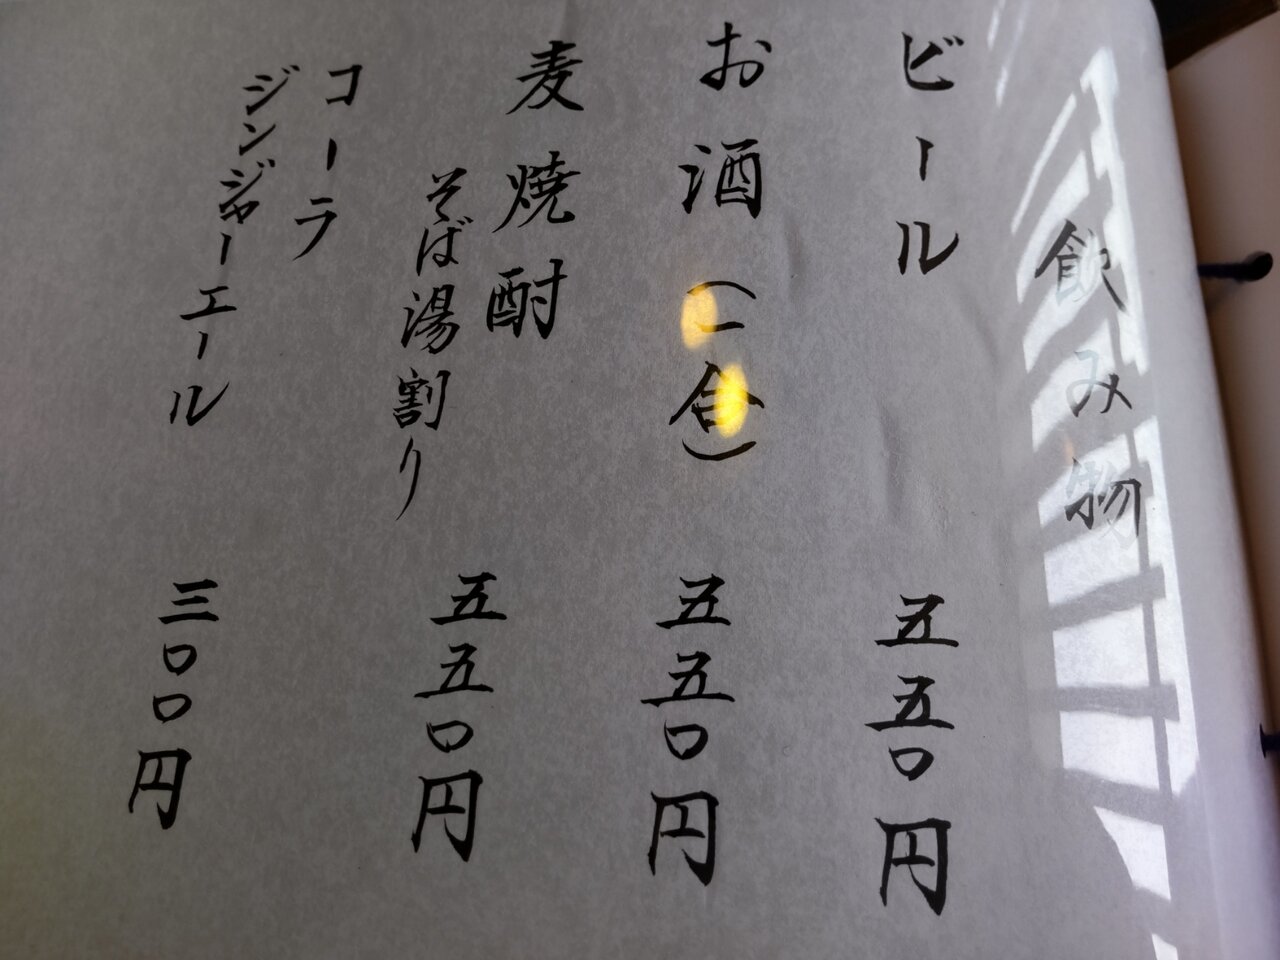 飲み物
ビール 五五〇円
お酒（一合） 五五〇円
麦焼酎
そば湯割り 五五〇円
コーラ
ジンジャーエール 三〇〇円